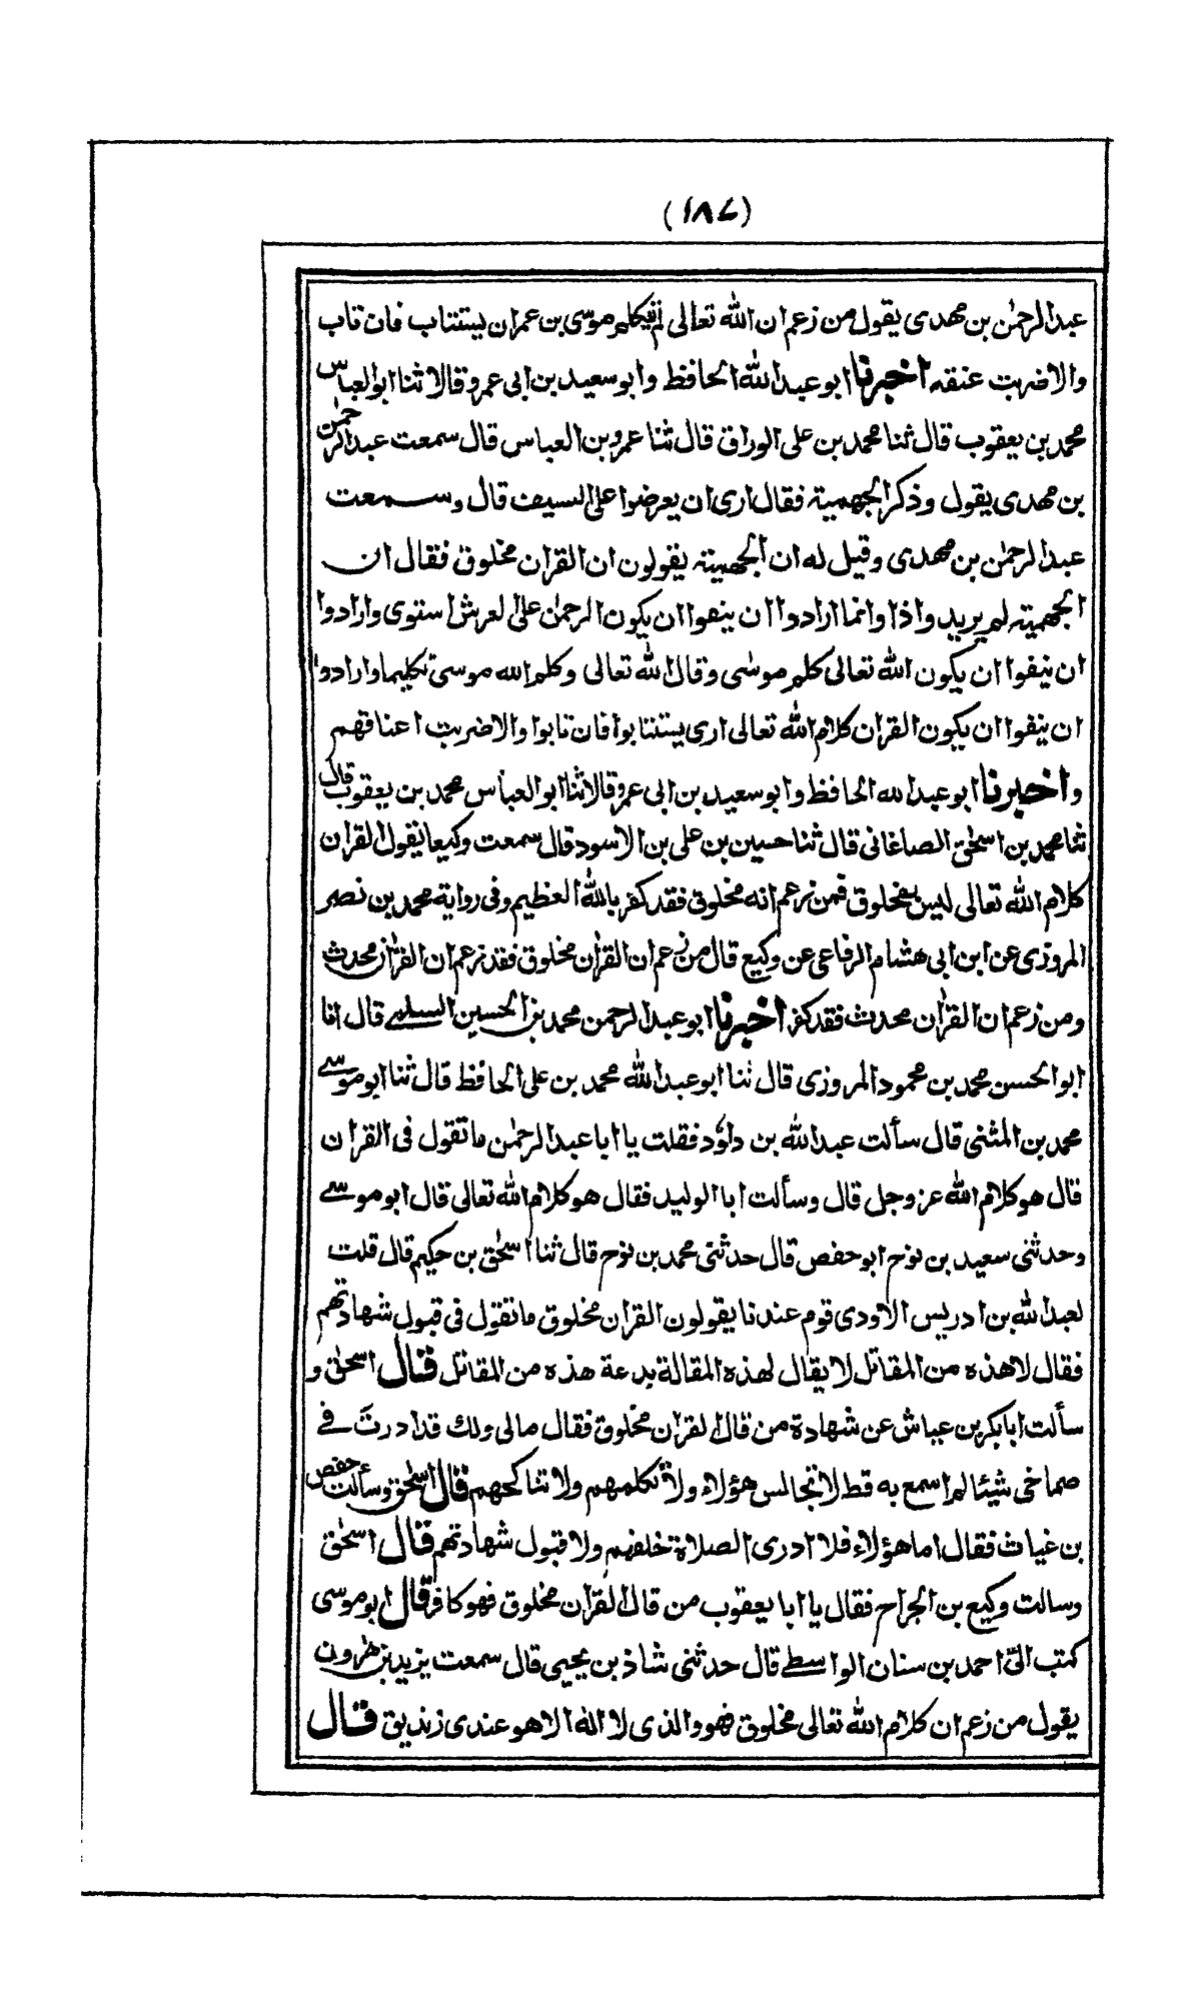 (١٨٧)
عبدالرحمٰن بن مهدى يقول من زعم ان الله تعالى لم يكلم موسى بن عمران يستتاب فان تاب
والاضربت عنقه اخبرنا ابو عبد الله الحافظ وابو سعيد بن ابى عمرو قالا ثنا ابو العباس
محمد بن يعقوب قال ثنا محمد بن على الوراق قال ثنا عمرو بن العباس قال سمعت عبدالرحمٰن
بن مهدى يقول وذكر الجهمية فقال ارى ان يعرضوا على السيف قال وسمعت
عبدالرحمٰن بن مهدى وقيل له ان الجهمية يقولون ان القرآن مخلوق فقال ان
الجهمية لم يريدوا ذا وانما ارادوا ان ينفوا ان يكون الرحمٰن على العرش استوى وارادوا
ان ينفوا ان يكون الله تعالى كلم موسٰى وقال الله تعالى وكلم الله موسى تكليما وارادوا
ان ينفوا ان يكون القرآن كلام الله تعالى ارى يستتابوا فان تابوا والاضربت اعناقهم
واخبرنا ابو عبد الله الحافظ وابو سعيد بن ابى عمرو قالا ثنا ابو العباس محمد بن يعقوب قال
ثنا محمد بن اسحٰق الصاغانى قال ثنا حسين بن على بن الاسود قال سمعت وكيعا يقول القرآن
كلام الله تعالى ليس بمخلوق فمن زعم انه مخلوق فقد كفر بالله العظيم وفى رواية محمد بن نصر
المروزى عن ابن ابى هشام الرفاعى عن وكيع قال من زعم ان القرآن مخلوق فقد زعم ان القرآن محدث
ومن زعم ان القرآن محدث فقد كفر اخبرنا ابو عبد الرحمن محمد بن الحسين السلمى قال انا
ابو الحسن محمد بن محمود المروزى قال ثنا ابو عبد الله محمد بن على الحافظ قال ثنا ابو موسى
محمد بن المثنى قال سألت عبدالله بن داؤد فقلت يا ابا عبدالرحمٰن ما تقول فى القرآن
قال هو كلام الله عز وجل قال وسألت ابا الوليد فقال هو كلام الله تعالى قال ابو موسى
وحدثنى سعيد بن نوح ابو حفص قال حدثنى محمد بن نوح قال ثنا اسحٰق بن حكيم قال قلت
لعبدالله بن ادريس الاودى قوم عندنا يقولون القرآن مخلوق ما تقول فى قبول شهادتهم
فقال لا هذه من المقاتل لا يقال لهذه المقالة بدعة هذه من المقاتل قال اسحٰق و
سألت ابا بكر بن عياش عن شهادة من قال القرآن مخلوق فقال مالى ولك قد ادرت فى
صماخى شيئا لم اسمع به قط لا تجالس هؤلاء ولا تكلمهم ولا تناكحهم قال اسحٰق وسألت حفص
بن غياث فقال اما هؤلاء فلا ادرى الصلاة خلفهم ولا قبول شهادتهم قال اسحٰق
وسالت وكيع بن الجراح فقال يا ابا يعقوب من قال القرآن مخلوق فهو كافر قال ابو موسى
كتب الىّ احمد بن سنان الواسطى قال حدثنى شاذ بن يحيى قال سمعت يزيد بن هٰرون
يقول من زعم ان كلام الله تعالى مخلوق فهو والذى لا اله الا هو عندى زنديق قال